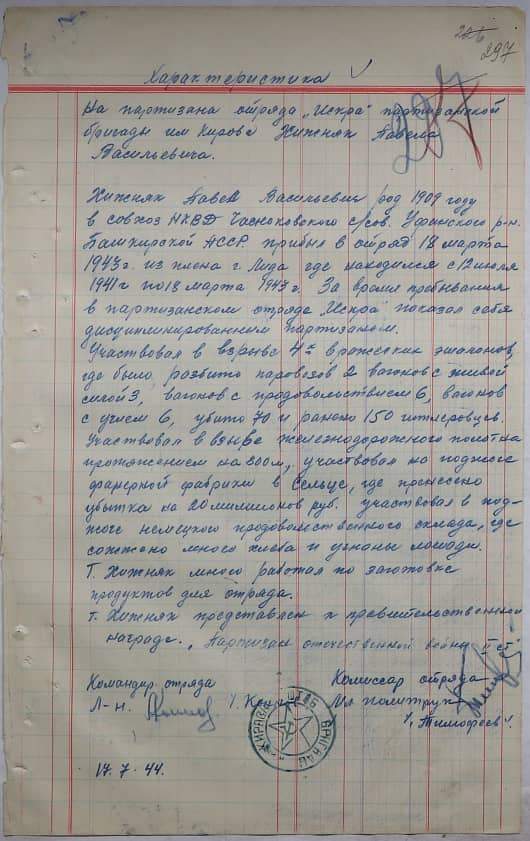 226
297
Характеристика
297
На партизана отряда „Искра" партизанской
бригады им Кирова Хижняк Павела
Васильевича.
Хижняк Павел Васильевич род 1909 году
в совхоз НКВД Чесноковского с/сов. Уфимского р-н.
Башкирской АССР прибыл в отряд 18 марта
1943 г. из плена г. Лида где находился с 12 июля
1941 г по 18 марта 1943 г. За время пребывания
в партизанском отряде „Искра" показал себя
дисциплинированным партизаном.
Участвовал в взрыве 4х вражеских эшалонов,
где было, розбито паровозов 2 вагонов с живой
силой 3, вагонов с продовольствием 6, вагонов
с углем 6, убито 70 и ранено 150 гитлеровцев.
Участвовал в взрыве железнодорожного полотна
протяжением на 200 м, участвовал на поджоге
фанерной фабрики в Сельце, где принесено
убытка на 20 милионов руб. участвовал в под-
жоге немецкого продовольственного склада, где
сожжено много хлеба и угнаны лошади.
Т. Хижняк много работал по заготовке
продуктов для отряда.
т. Хижняк представлен к правительственной
награде. „Партизан отечественной войны II ст
Командир отряда
Комиссар отряда
Л-н.
Мл политрук
/Тимофеев/.
17.7-44.